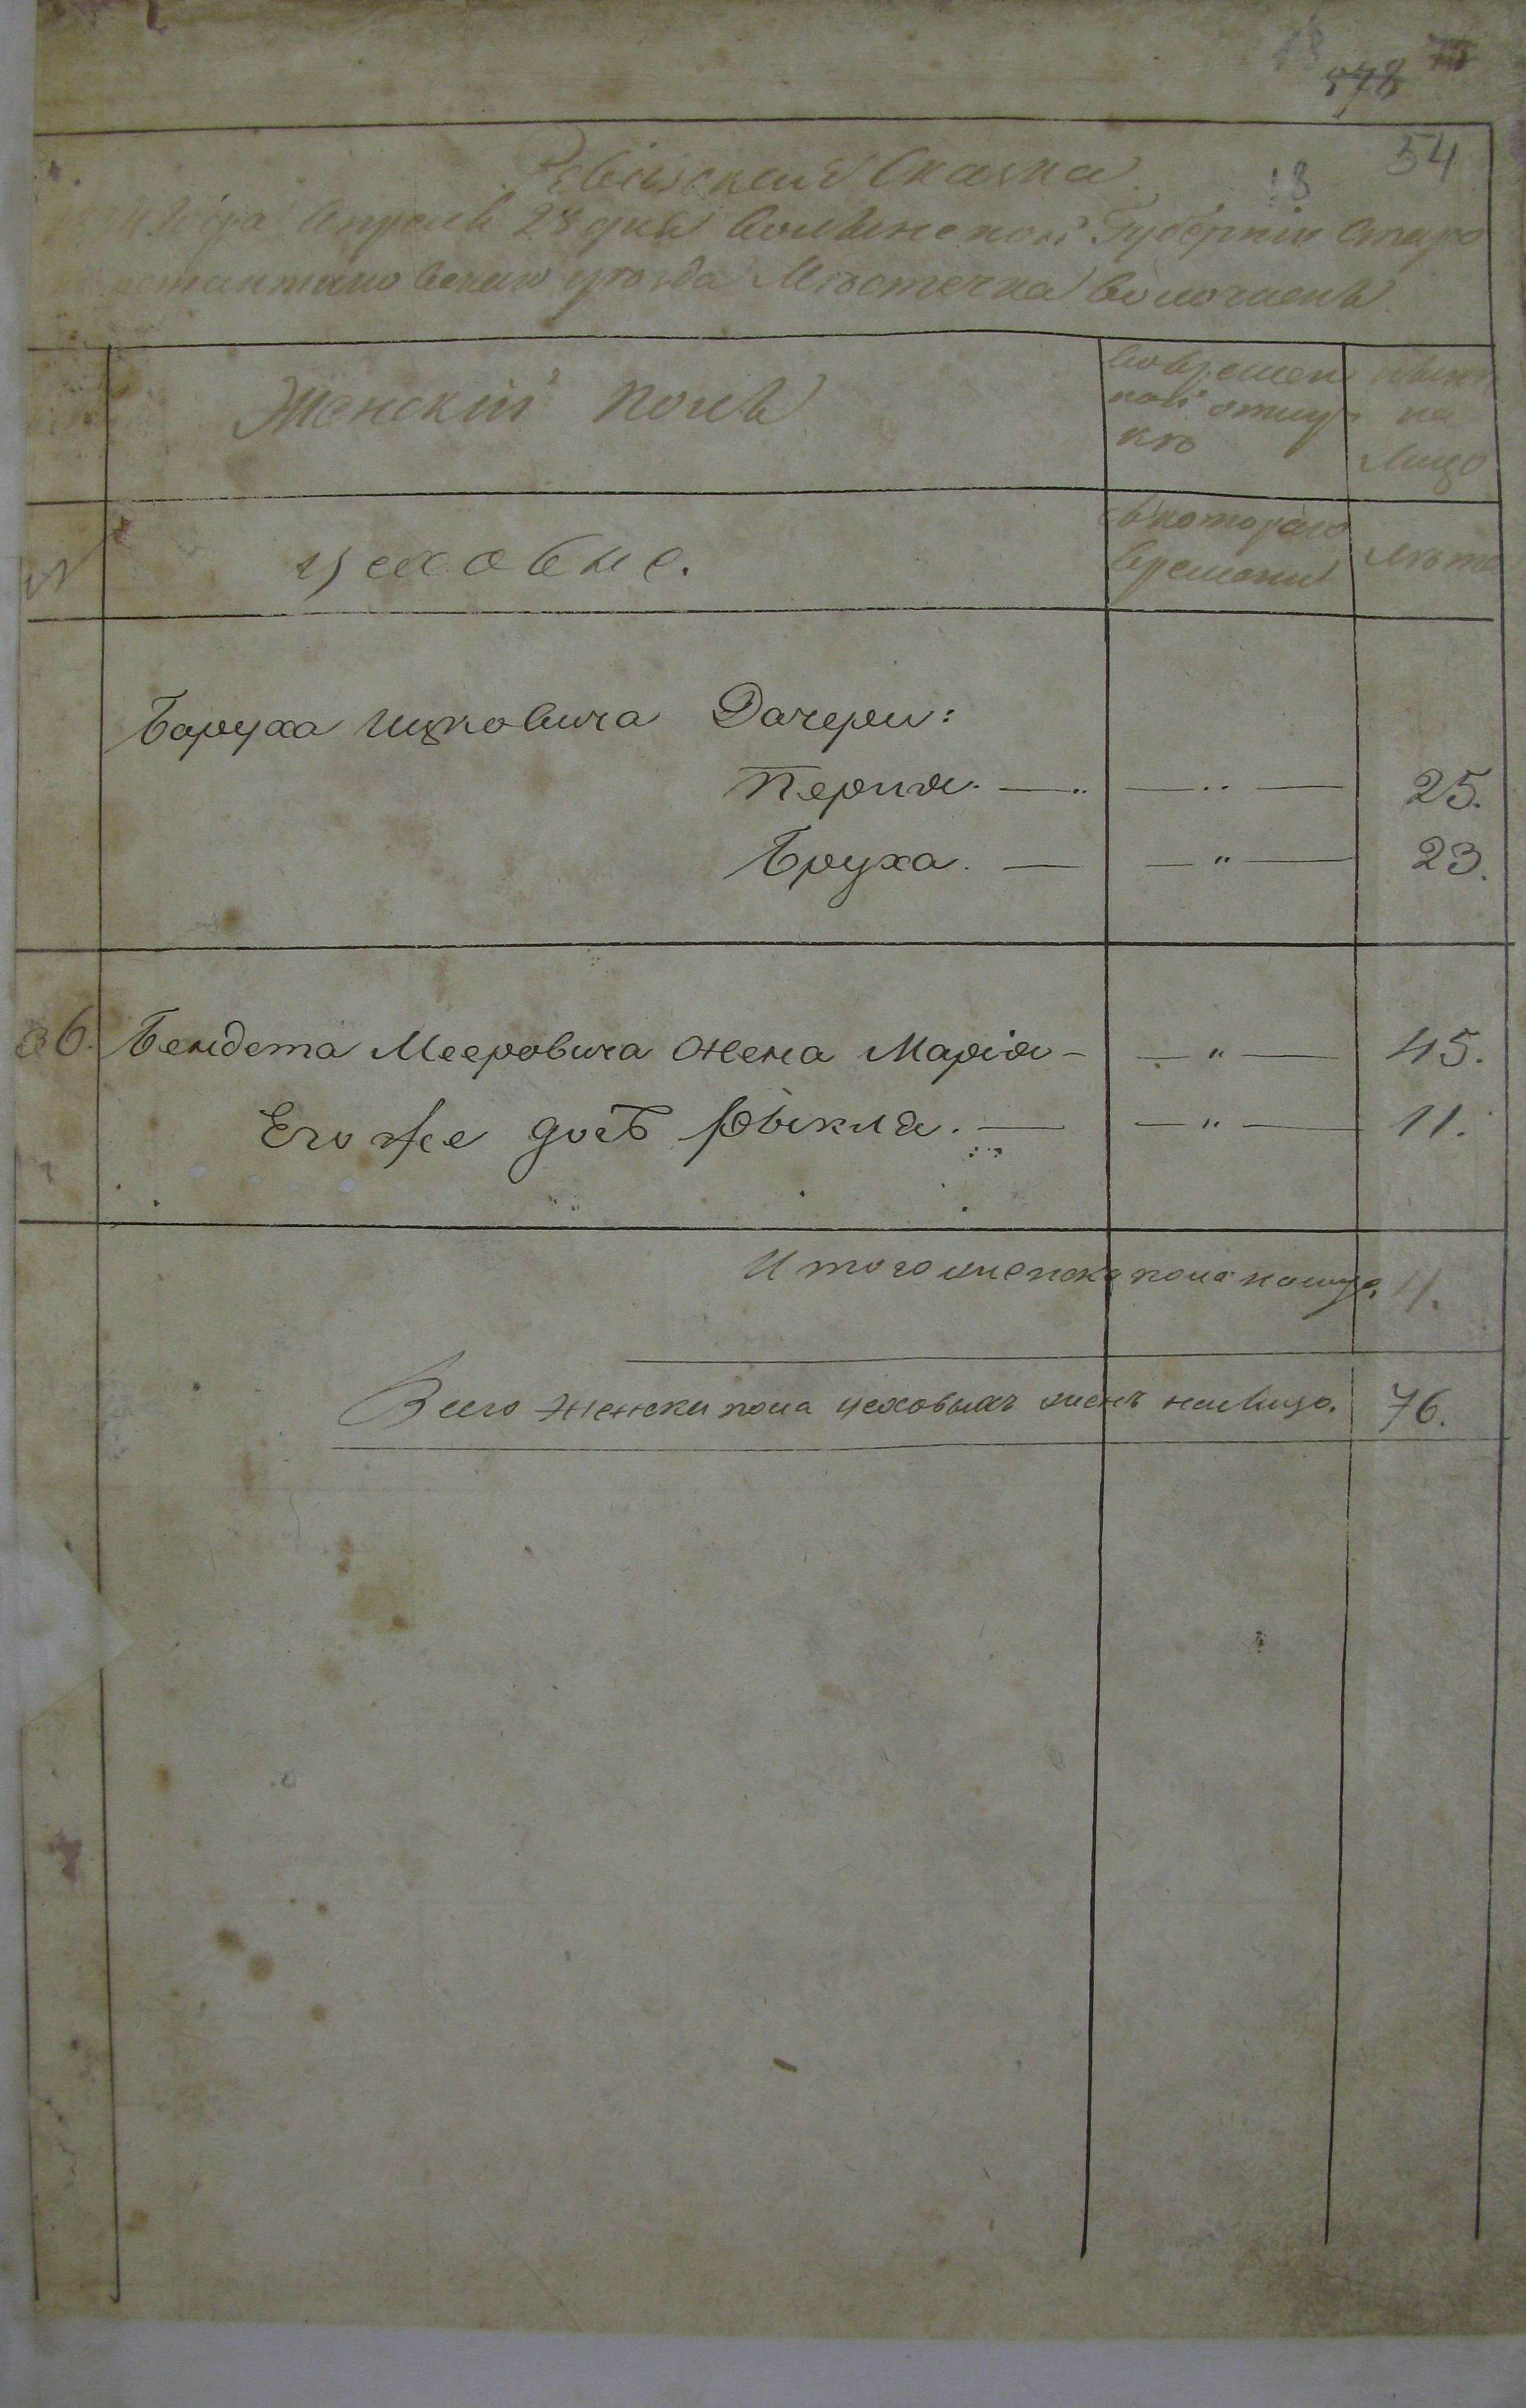 578
54
18
Ревизская Сказка
года Апреля 28 дня Волынской Губернии Старо
константиновскаго уезда Местечка Волочискъ
Женскій полъ
Во времен
ной отлу
кѣ
нынѣ
на
лицо
N
цеховые.
съ котораго
времени
лѣта
Баруха Ицковича Дочери:
Перля. — „ — „ — 25.
Бруха. — — „ — 23.
36. Бендета Мееровича жена Марія — — „ — 45.
Его же дочь Рыкля. — — „ — 11.
Итого женска пола налицо. 4.
Всего женска пола цеховыхъ налицо. 76.